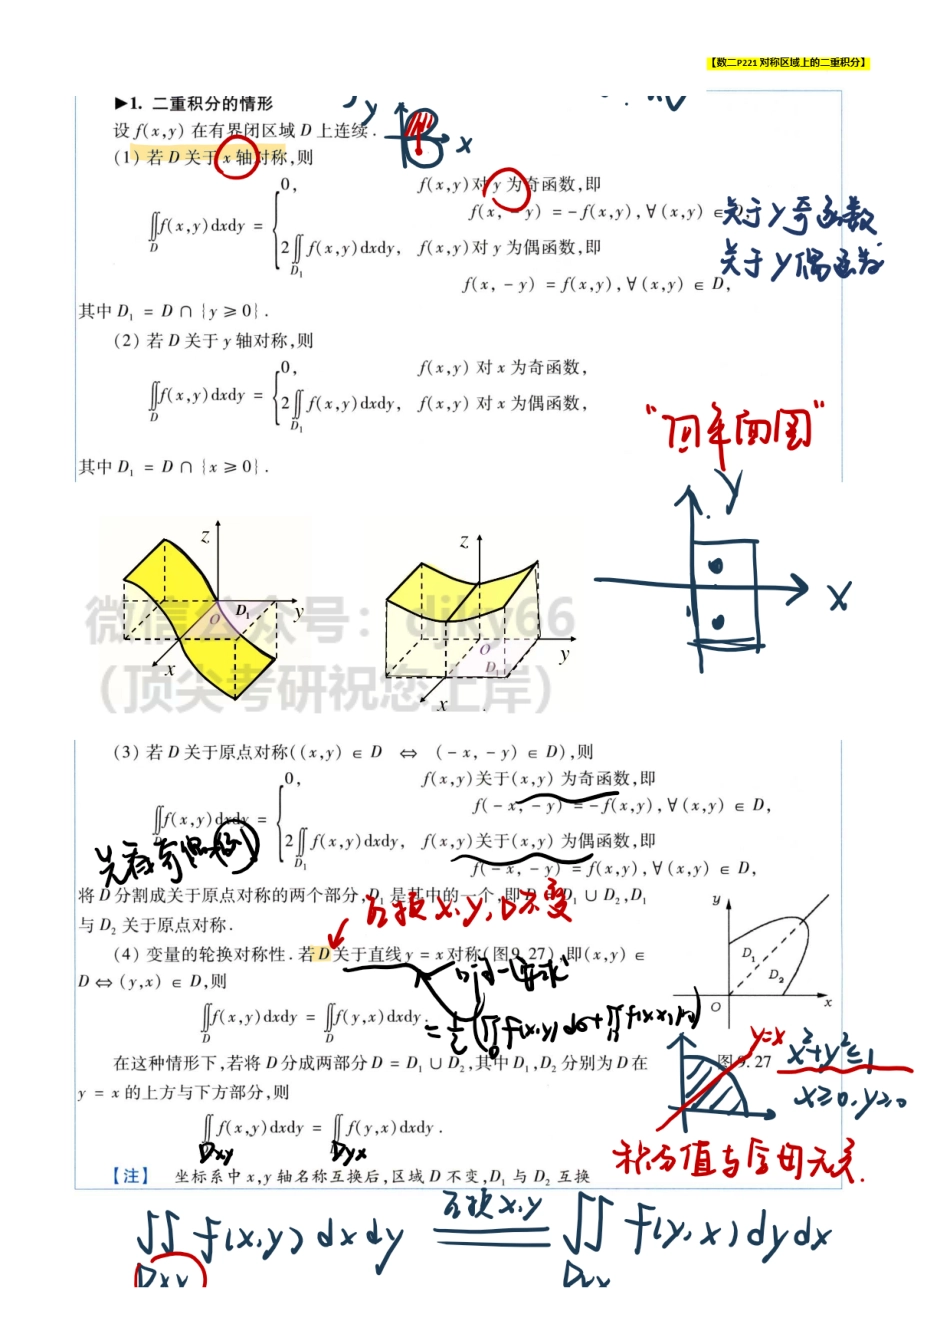 【数二P221 对称区域上的二重积分】
▶1. 二重积分的情形
y
x
设 f(x,y) 在有界闭区域 D 上连续.
(1) 若 D 关于 x 轴对称,则
∬f(x,y)dxdy = {
D
0, f(x,y)对 y 为奇函数,即
f(x, -y) = -f(x,y), ∀(x,y) ∈
2∬f(x,y)dxdy, f(x,y)对 y 为偶函数,即
D₁
f(x, -y) = f(x,y), ∀(x,y) ∈ D,
关于y奇函数
关于y偶函数
其中 D₁ = D ∩ {y ≥ 0}.
(2) 若 D 关于 y 轴对称,则
∬f(x,y)dxdy = {
D
0, f(x,y) 对 x 为奇函数,
2∬f(x,y)dxdy, f(x,y) 对 x 为偶函数,
D₁
其中 D₁ = D ∩ {x ≥ 0}.
y
x
z
D₁
O
y
x
z
O
D₁
y
x
微信公众号：djky66
（顶尖考研祝您上岸）
(3) 若 D 关于原点对称((x,y) ∈ D ⇔ (-x, -y) ∈ D),则
∬f(x,y)dxdy = {
0, f(x,y)关于(x,y) 为奇函数,即
f(-x, -y) = -f(x,y), ∀(x,y) ∈ D,
2∬f(x,y)dxdy, f(x,y)关于(x,y) 为偶函数,即
D₁
f(-x, -y) = f(x,y), ∀(x,y) ∈ D,
将 D 分割成关于原点对称的两个部分, D₁ 是其中的一个,即 D = D₁ ∪ D₂, D₁
与 D₂ 关于原点对称.
互换x,y,D不变
(4) 变量的轮换对称性. 若 D 关于直线 y = x 对称(图9.27),即(x,y) ∈
D ⇔ (y,x) ∈ D,则
∬f(x,y)dxdy = ∬f(y,x)dxdy.
D D
y
D₁
D₂
O
x
图9.27
在这种情形下,若将 D 分成两部分 D = D₁ ∪ D₂,其中 D₁, D₂ 分别为 D 在
y = x 的上方与下方部分,则
∬f(x,y)dxdy = ∬f(y,x)dxdy.
Dxy Dyx
y=x
x²+y²≤1
x≥0,y≥0
积分值与字母无关.
【注】 坐标系中 x,y 轴名称互换后,区域 D 不变, D₁ 与 D₂ 互换
∬f(x,y)dxdy 互换x,y ∬f(y,x)dydx
Dxy Dyx